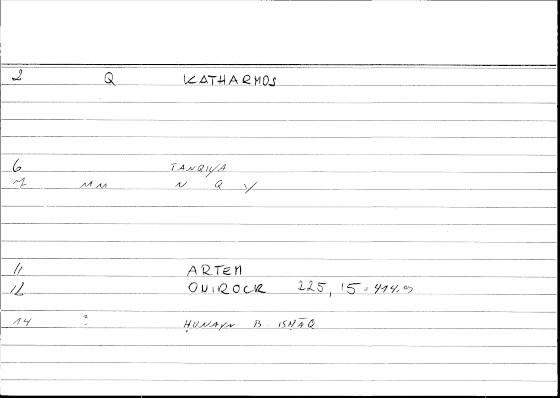 2 Q KATHARMOS
6 TANQIYA
7 MM N Q Y
11 ARTEM
12 ONIROCR 225, 15 = 414.9
14 ? ḤUNAYN B. ISḤĀQ